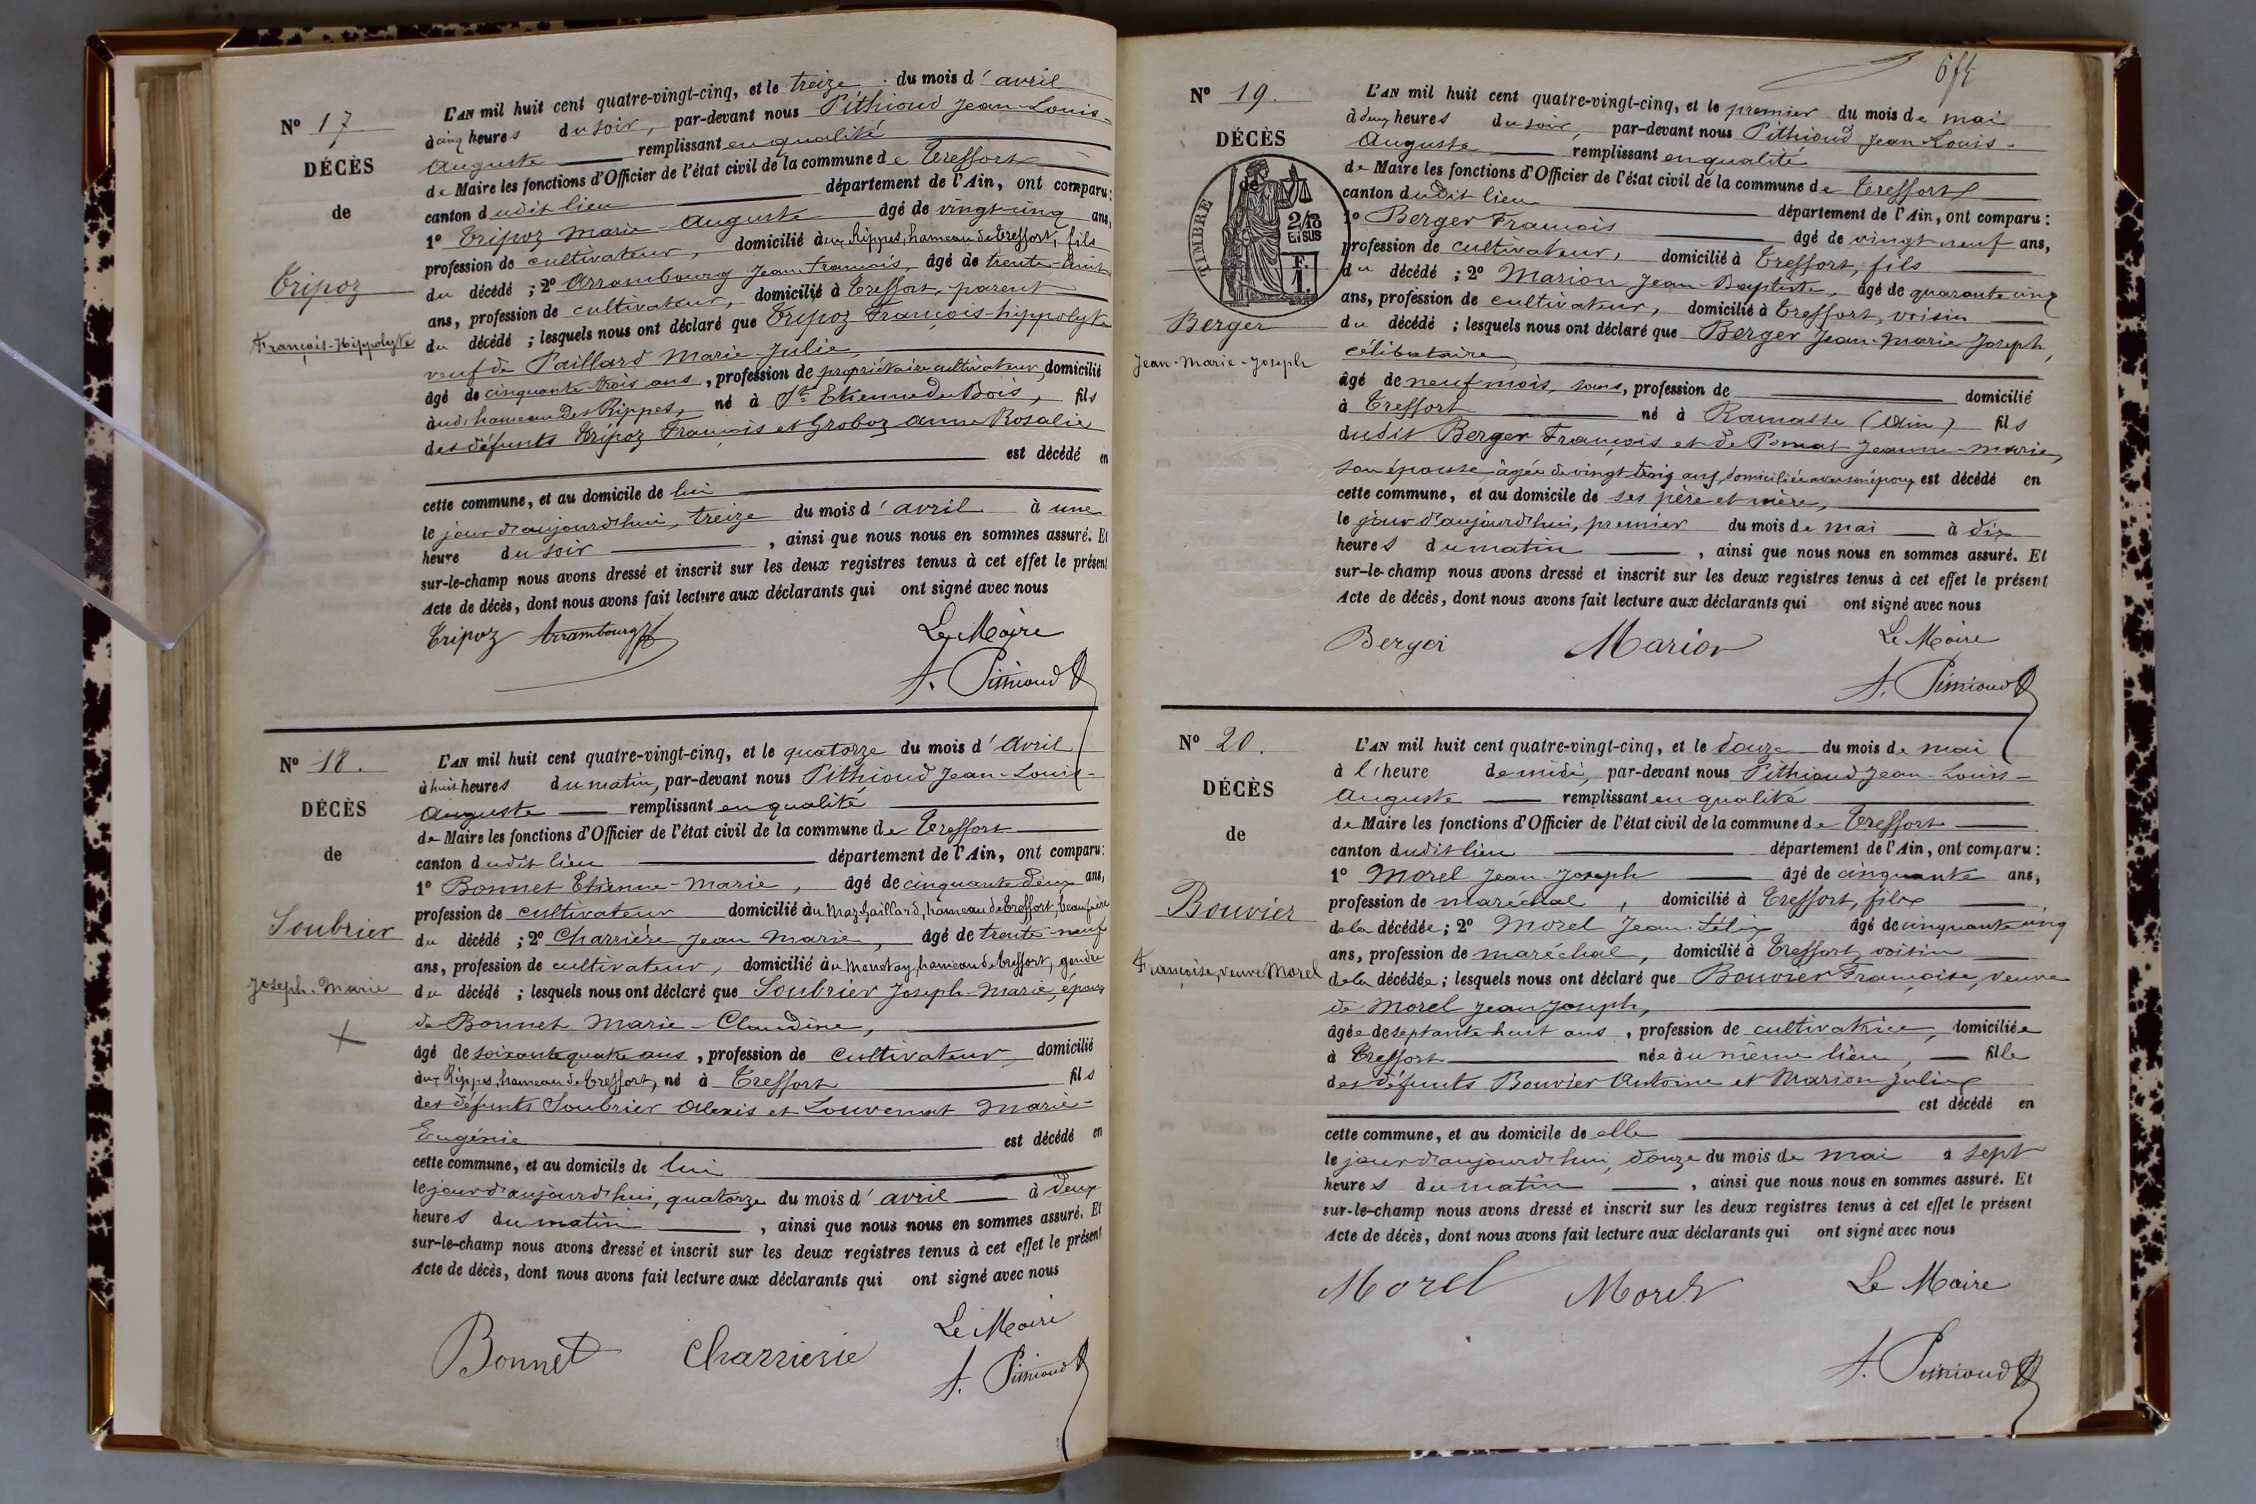 Nº 17
DÉCÈS
de
Tripoz
François-Hippolyte
L'AN mil huit cent quatre-vingt-cinq, et le treize du mois d'avril
à cinq heures du soir, par-devant nous Pithioud Jean-Louis-
Auguste remplissant en qualité
de Maire les fonctions d'Officier de l'état civil de la commune de Treffort
canton dudit lieu département de l'Ain, ont comparu:
1º Tripoz Marie-Auguste âgé de vingt-cinq ans,
profession de cultivateur, domicilié aux Rippes, hameau de Treffort, fils
du décédé ; 2º Arrambourg Jean François, âgé de trente-huit
ans, profession de cultivateur, domicilié à Treffort, parent
du décédé ; lesquels nous ont déclaré que Tripoz François-hippolyte
veuf de Paillard Marie-Julie,
âgé de cinquante-trois ans, profession de propriétaire cultivateur, domicilié
audit hameau des Rippes, né à St Etienne du Bois, fils
des défunts Tripoz François et Groboz Anne Rosalie
est décédé en
cette commune, et au domicile de lui
le jour d'aujourd'hui, treize du mois d'avril à une
heure du soir, ainsi que nous nous en sommes assuré. Et
sur-le-champ nous avons dressé et inscrit sur les deux registres tenus à cet effet le présent
Acte de décès, dont nous avons fait lecture aux déclarants qui ont signé avec nous
Tripoz Arrambourg Le Maire
A. Pithioud
Nº 18.
DÉCÈS
de
Soubrier
Joseph-Marie
L'AN mil huit cent quatre-vingt-cinq, et le quatorze du mois d'Avril
à huit heures du matin, par-devant nous Pithioud Jean-Louis-
Auguste remplissant en qualité
de Maire les fonctions d'Officier de l'état civil de la commune de Treffort
canton dudit lieu département de l'Ain, ont comparu:
1º Bonnet Etienne-Marie, âgé de cinquante-deux ans,
profession de cultivateur domicilié au Maz-Gaillard, hameau de Treffort, beau frère
du décédé ; 2º Charrière Jean Marie, âgé de trente-neuf
ans, profession de cultivateur, domicilié au Monotay, hameau de Treffort, gendre
du décédé ; lesquels nous ont déclaré que Soubrier Joseph-Marie, époux
de Bonnet Marie-Claudine,
âgé de soixante quatre ans, profession de cultivateur, domicilié
aux Rippes, hameau de Treffort, né à Treffort fils
des défunts Soubrier Alexis et Louvemat Marie-
Eugénie est décédé en
cette commune, et au domicile de lui
le jour d'aujourd'hui, quatorze du mois d'avril à deux
heures du matin, ainsi que nous nous en sommes assuré. Et
sur-le-champ nous avons dressé et inscrit sur les deux registres tenus à cet effet le présent
Acte de décès, dont nous avons fait lecture aux déclarants qui ont signé avec nous
Bonnet Charrière Le Maire
A. Pithioud
Nº 19.
DÉCÈS
de
TIMBRE
2/10
EN SUS
F.
1.
Berger
Jean-Marie-Joseph
L'AN mil huit cent quatre-vingt-cinq, et le premier du mois de mai
à deux heures du soir, par-devant nous Pithioud Jean-Louis-
Auguste remplissant en qualité
de Maire les fonctions d'Officier de l'état civil de la commune de Treffort
canton dudit lieu département de l'Ain, ont comparu :
1º Berger François âgé de vingt-neuf ans,
profession de cultivateur, domicilié à Treffort, fils
du décédé ; 2º Marion Jean-Baptiste, âgé de quarante cinq
ans, profession de cultivateur, domicilié à Treffort, voisin
du décédé ; lesquels nous ont déclaré que Berger Jean-Marie Joseph,
célibataire,
âgé de neuf mois, sans, profession de domicilié
à Treffort né à Ramasse (Ain) fils
dudit Berger François et de Pomat Jeanne-Marie,
son épouse âgée de vingt-trois ans, domiciliée avec son époux est décédé en
cette commune, et au domicile de ses père et mère,
le jour d'aujourd'hui, premier du mois de mai à dix
heures du matin, ainsi que nous nous en sommes assuré. Et
sur-le-champ nous avons dressé et inscrit sur les deux registres tenus à cet effet le présent
Acte de décès, dont nous avons fait lecture aux déclarants qui ont signé avec nous
Berger Marion Le Maire
A. Pithioud
Nº 20.
DÉCÈS
de
Bouvier
Françoise, veuve Morel
L'AN mil huit cent quatre-vingt-cinq, et le douze du mois de mai
à l'heure de midi, par-devant nous Pithioud Jean-Louis-
Auguste remplissant en qualité
de Maire les fonctions d'Officier de l'état civil de la commune de Treffort
canton dudit lieu département de l'Ain, ont comparu :
1º Morel Jean-Joseph âgé de cinquante ans,
profession de maréchal, domicilié à Treffort, fils
de la décédée ; 2º Morel Jean-Félix âgé de cinquante cinq
ans, profession de maréchal, domicilié à Treffort, voisin
de la décédée ; lesquels nous ont déclaré que Bouvier Françoise, veuve
de Morel Jean Joseph,
âgée de septante-huit ans, profession de cultivatrice, domiciliée
à Treffort née au même lieu, fille
des défunts Bouvier Antoine et Marion Julie
est décédé en
cette commune, et au domicile de elle
le jour d'aujourd'hui, douze du mois de mai à sept
heures du matin, ainsi que nous nous en sommes assuré. Et
sur-le-champ nous avons dressé et inscrit sur les deux registres tenus à cet effet le présent
Acte de décès, dont nous avons fait lecture aux déclarants qui ont signé avec nous
Morel Morel Le Maire
A. Pithioud